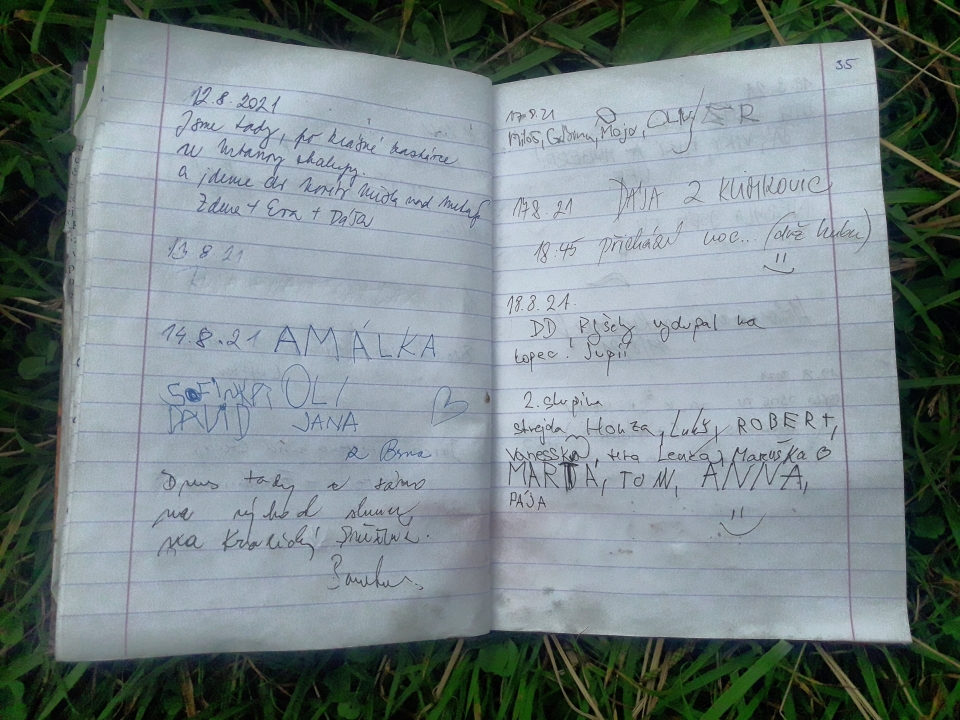 12.8.2021
Jsme tady, po krásné
chalupy.
a jdeme do
Zdena + Eva + Dáša
13 8 21
14.8.21 AMÁLKA
SOFINKA, OLI
DAVID JANA
z Brna
Dnes tady a ráno
na východ slunce
na Králický Sněžník.
35
17.8.21
Miloš, Majo, OLIVER
17.8.21 DÁŠA Z KLIMKOVIC
18:45 přichází noc... (
18.8.21.
DD vydupal na
kopec! Supíí
2. skupina
strejda Honza, Lukš, ROBERT,
Vanesska, teta Lenka, Maruška
MARTA, TOM, ANNA,
PÁJA